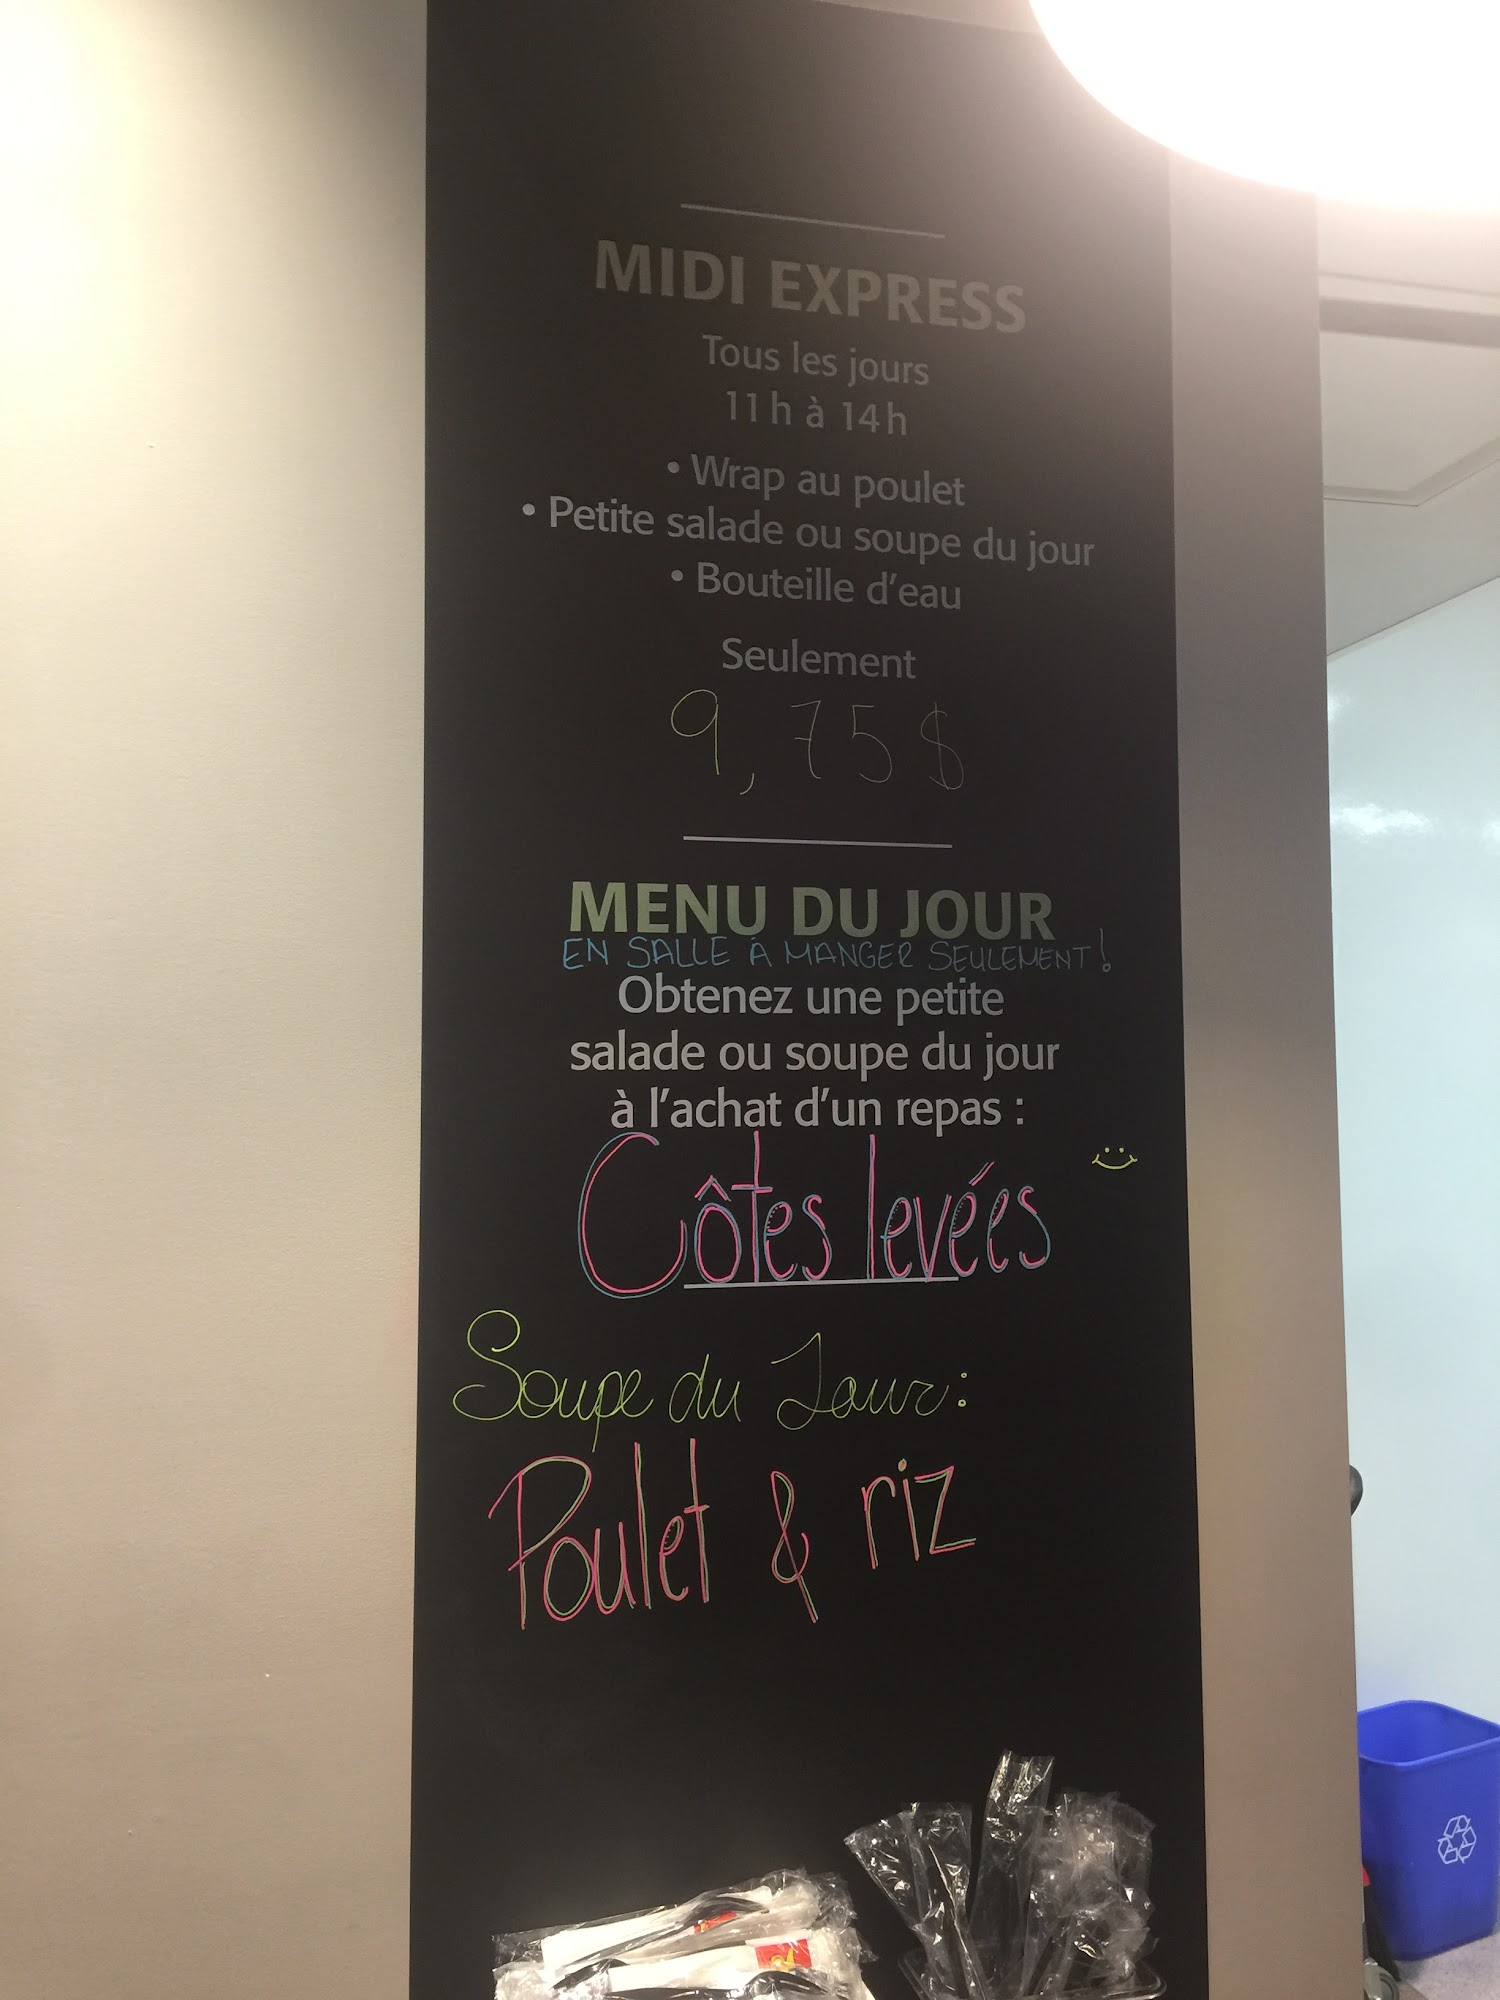 MIDI EXPRESS
Tous les jours
11h à 14h
• Wrap au poulet
• Petite salade ou soupe du jour
• Bouteille d'eau
Seulement
9,75$
MENU DU JOUR
EN SALLE À MANGER SEULEMENT!
Obtenez une petite
salade ou soupe du jour
à l'achat d'un repas :
Côtes levées
Soupe du Jour:
Poulet & riz